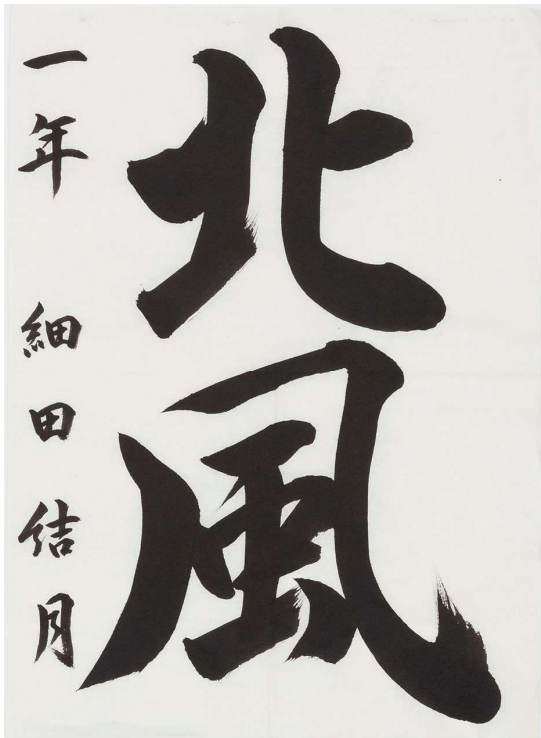 北風
一年 細田結月